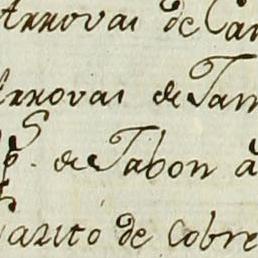 Arrovas de Car
Arrovas de Jam
pS. de Jabon a
Jarito de Cobre